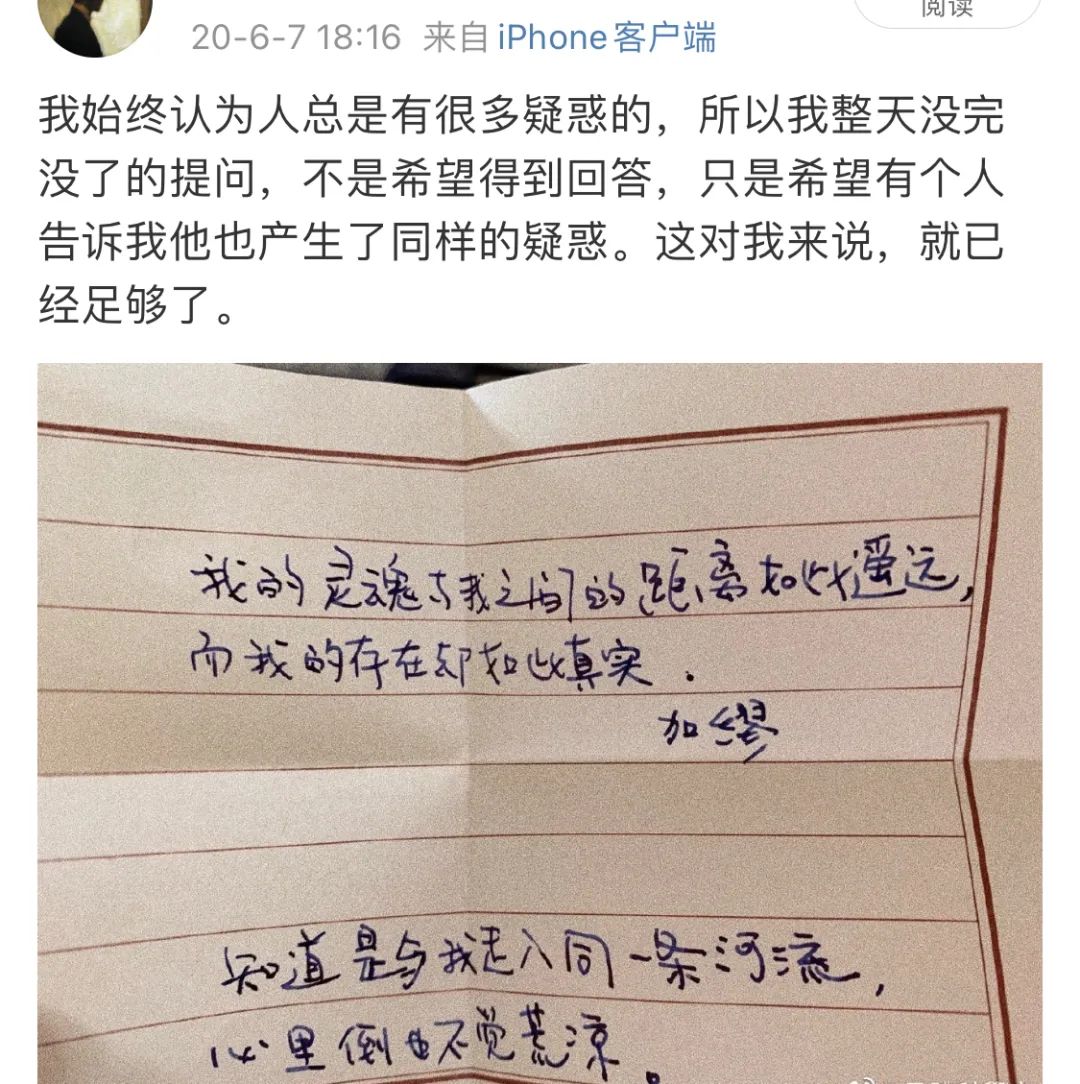 阅读
20-6-7 18:16 来自 iPhone客户端
我始终认为人总是有很多疑惑的，所以我整天没完
没了的提问，不是希望得到回答，只是希望有个人
告诉我他也产生了同样的疑惑。这对我来说，就已
经足够了。
我的灵魂与我之间的距离如此遥远，
而我的存在却如此真实．
加缪
知道是与我走入同一条河流，
心里倒也不觉荒凉。